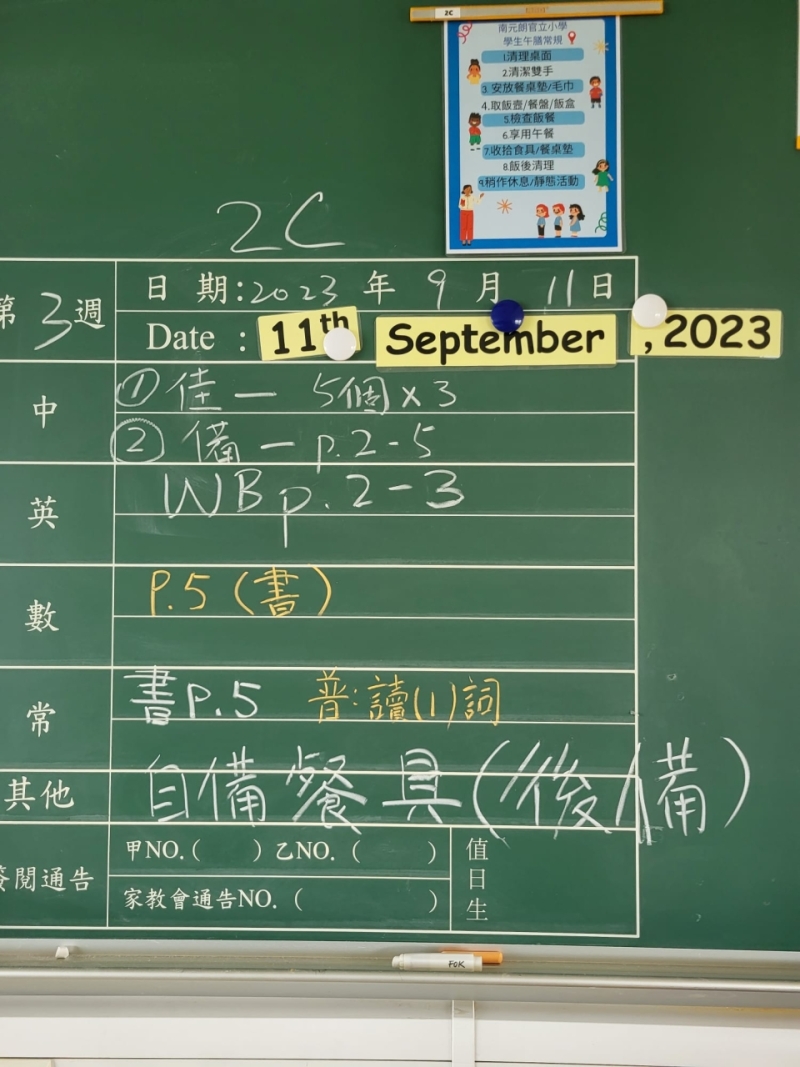 2C
南元朗官立小學
學生午膳常規
1.清理桌面
2.清潔雙手
3.安放餐桌墊/毛巾
4.取飯壺/餐盤/飯盒
5.檢查飯餐
6.享用午餐
7.收拾食具/餐桌墊
8.飯後清理
9.稍作休息/靜態活動
2C
第3週
日期:2023年9月11日
Date : 11th September , 2023
中
① 佳 — 5個 x 3
② 備 — p.2-5
英
WB p.2-3
數
P.5 (書)
常
書P.5 普:讀(1)詞
其他
自備餐具(後備)
簽閱通告
甲NO.( ) 乙NO. ( )
家教會通告NO. ( )
值日生
FOK